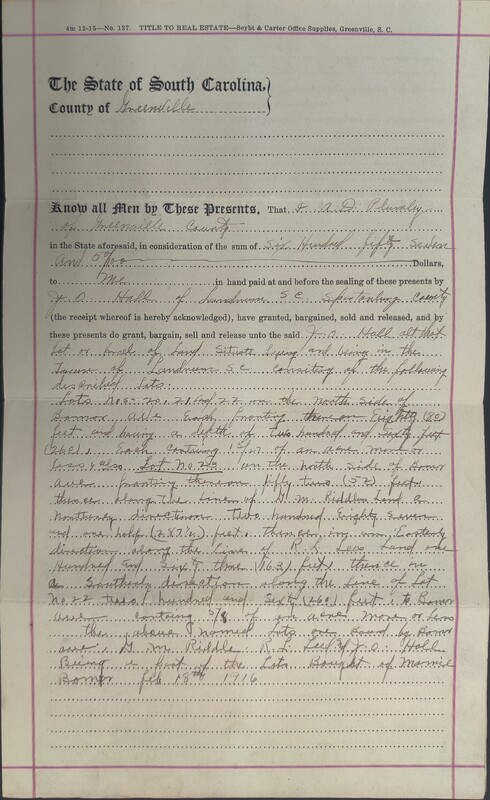 4m 12-15—No. 137. TITLE TO REAL ESTATE—Seybt & Carter Office Supplies, Greenville, S. C.
The State of South Carolina,
County of Greenville
Know all Men by These Presents, That I A. D. Plumley
of Greenville County
in the State aforesaid, in consideration of the sum of Six Hundred fifty seven
and 50/100 Dollars,
to Me in hand paid at and before the sealing of these presents by
J. O. Hall of Landrum S C Spartanburg County
(the receipt whereof is hereby acknowledged), have granted, bargained, sold and released, and by
these presents do grant, bargain, sell and release unto the said J. O. Hall all that
Lot or parsel of Land Situate lying and being in the
of Landrum S C of the following
described lots:
Lots Nos- 20, 21 and 22 on the North side of
Bomar ave Each thereon Eighty (80)
feet and having a depth of two hundred and sixty feet
(260). Each of an acre more or
less also Lot No. 23 on the North side of Bomar
ave thereon fifty two (52) feet
thence along the line of G. M. Riddles land a
direction Two hundred Eighty seven
and one half (287½) feet thence in an Easterly
direction along the line of R. L. Lees Land one
Hundred and Sixty three (163) feet thence in
a Southerly direction along the Line of Lot
No. 22 two hundred and Sixty (260) feet to Bomar
ave 5/8 of an acre more or less
the above named lots are bound by Bomar
ave, G. M. Riddle R. L. Lee & J. O. Hall
Being a part of the Lots Bought of
Bomar feb 18th 1916